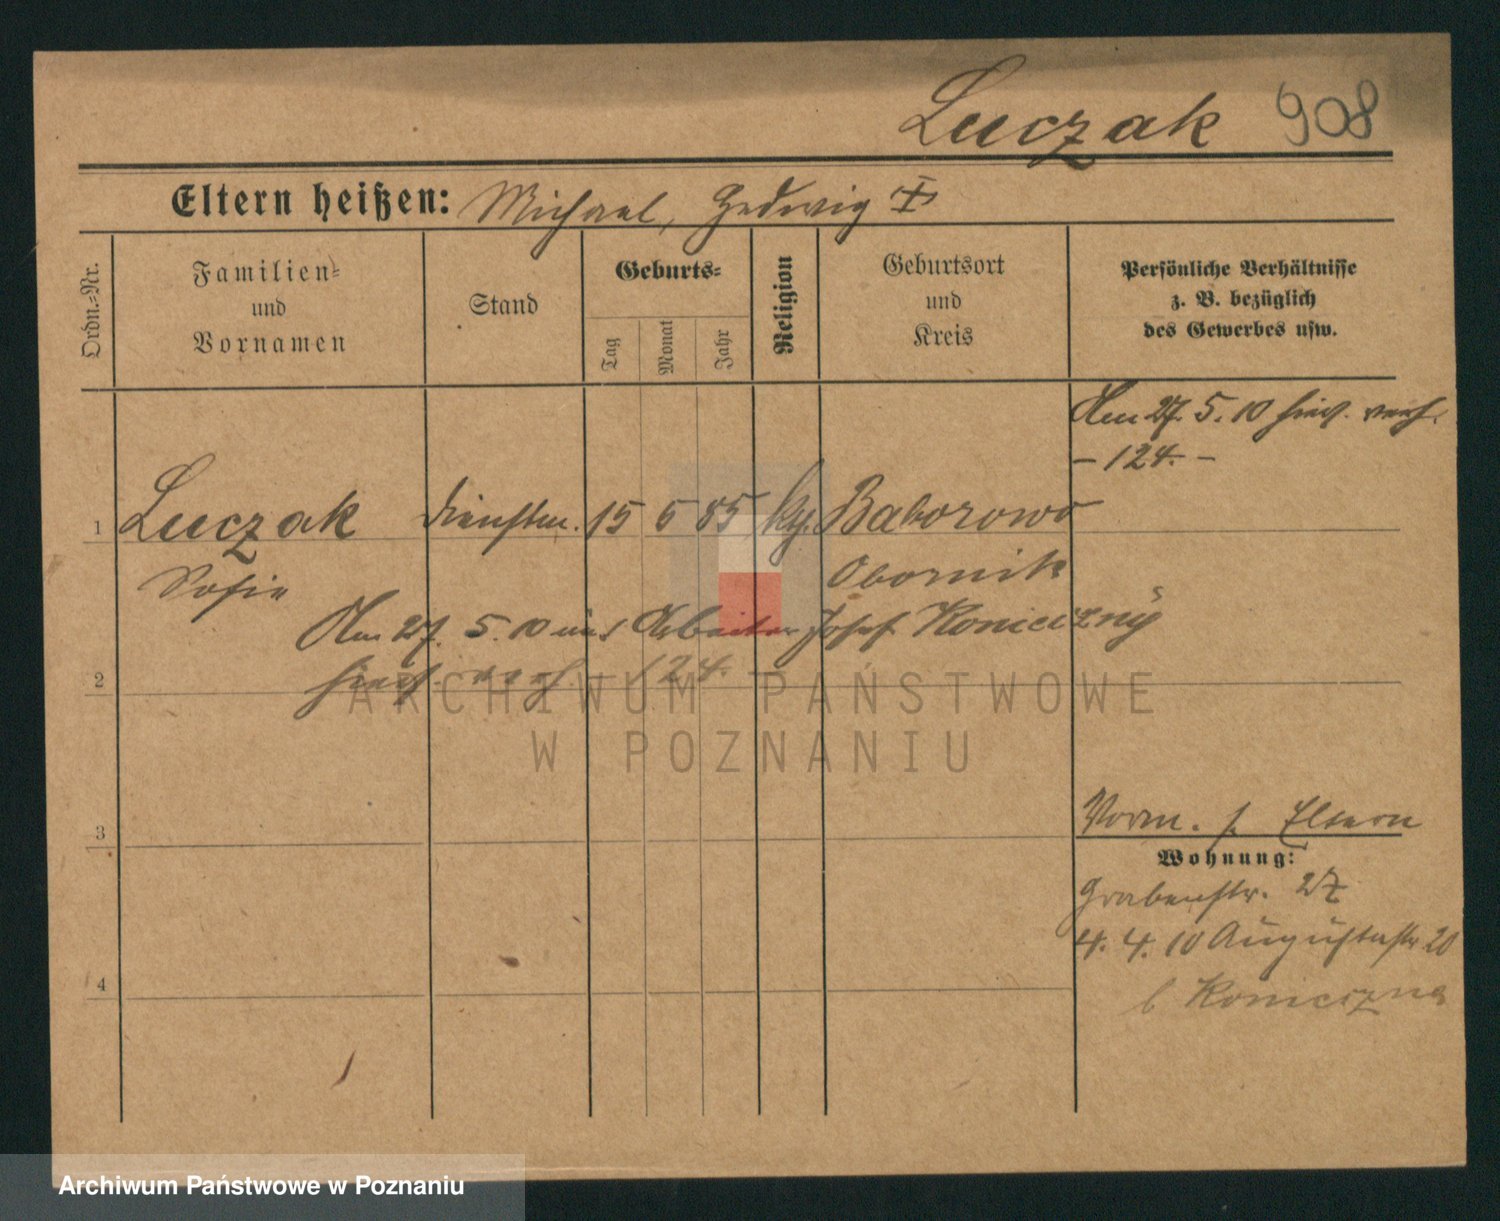 Luczak 908
Eltern heißen: Michael, Hedwig
Ordn.=Nr.
Familien=
und
Vornamen
Stand
Geburts=
Tag
Monat
Jahr
Religion
Geburtsort
und
Kreis
Persönliche Verhältnisse
z. B. bezüglich
des Gewerbes usw.
Am 27. 5. 10 hies. verh.
- 124. -
1 Luczak Dienstm. 15 5 85 kg. Baborowo
Sofie Obornik
Am 27. 5. 10 mit Arbeiter Josef Konieczny
hies. verh. 124.
2
ARCHIWUM PAŃSTWOWE
W POZNANIU
3
Vorm. s. Eltern
Wohnung:
Grabenstr. 27
4. 4. 10 Augustastr 20
4
b Konieczna
Archiwum Państwowe w Poznaniu